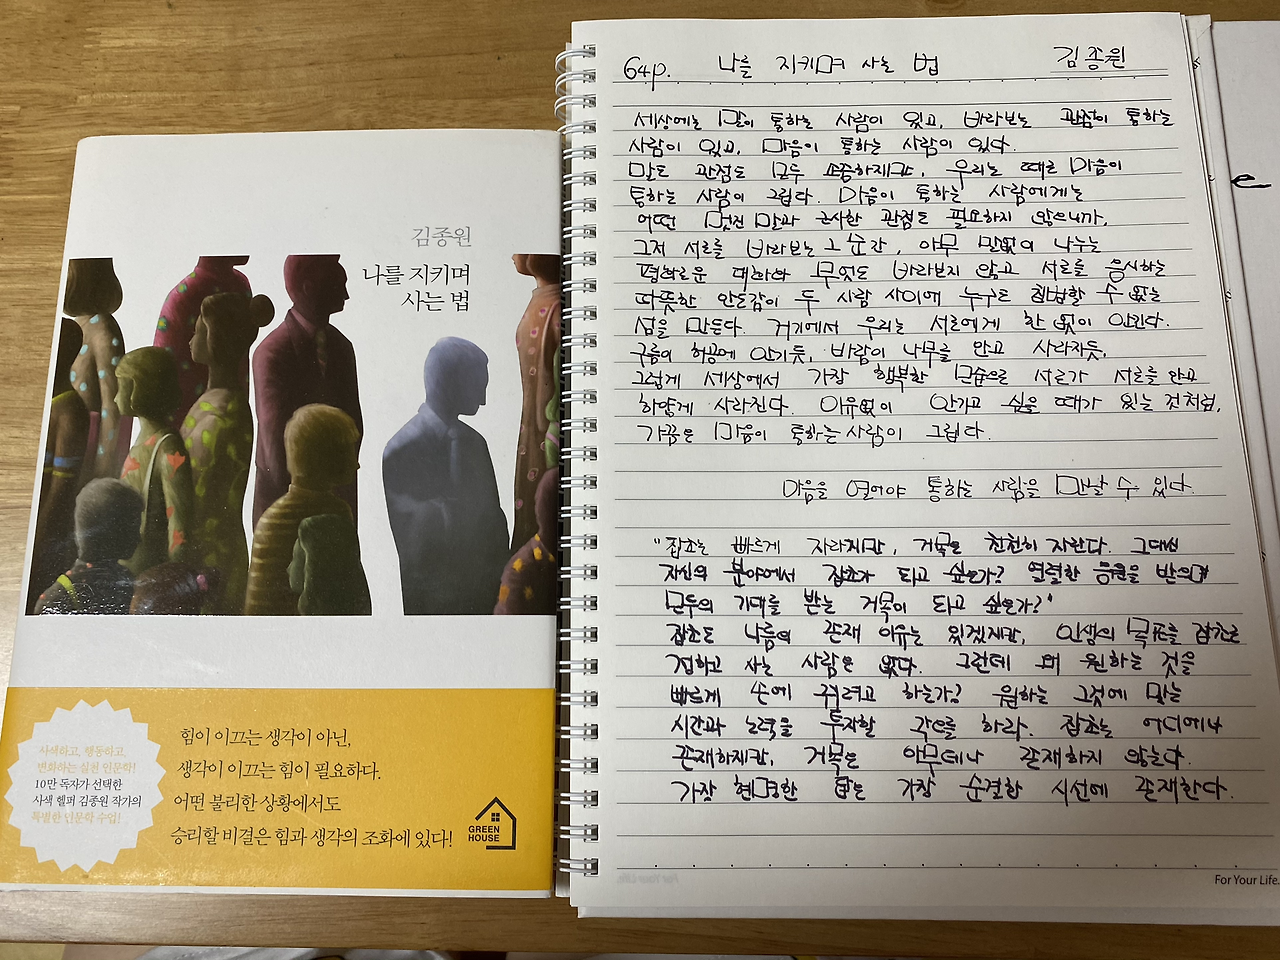 김종원
나를 지키며
사는 법
사색하고, 행동하고,
변화하는 실천 인문학!
10만 독자가 선택한
사색 헬퍼 김종원 작가의
특별한 인문학 수업!
힘이 이끄는 생각이 아닌,
생각이 이끄는 힘이 필요하다.
어떤 불리한 상황에서도
승리할 비결은 힘과 생각의 조화에 있다!
GREEN
HOUSE
64p. 나를 지키며 사는 법 김종원
세상에는 말이 통하는 사람이 있고, 바라보는 관점이 통하는
사람이 있고, 마음이 통하는 사람이 있다.
말도 관점도 모두 소중하지만, 우리는 때로 마음이
통하는 사람이 그립다. 마음이 통하는 사람에게는
어떤 멋진 말과 근사한 관점도 필요하지 않으니까.
그저 서로를 바라보는 그 순간, 아무 말없이 나누는
평화로운 대화와 무엇도 바라보지 않고 서로를 응시하는
따뜻한 안도감이 두 사람 사이에 누구도 침범할 수 없는
섬을 만든다. 거기에서 우리는 서로에게 한 없이 안긴다.
구름이 허공에 안기듯, 바람이 나무를 안고 사라지듯,
그렇게 세상에서 가장 행복한 모습으로 서로가 서로를 안고
하얗게 사라진다. 이유없이 안기고 싶을 때가 있는 것처럼,
가끔은 마음이 통하는 사람이 그립다.
마음을 열어야 통하는 사람을 만날 수 있다.
"잡초는 빠르게 자라지만, 거목은 천천히 자란다. 그대는
자신의 분야에서 잡초가 되고 싶은가? 열렬한 응원을 받으며
모두의 기대를 받는 거목이 되고 싶은가?"
잡초도 나름의 존재 이유는 있겠지만, 인생의 목표를 잡초로
정하고 사는 사람은 없다. 그런데 왜 원하는 것을
빠르게 손에 쥐려고 하는가? 원하는 그것에 맞는
시간과 노력을 투자할 각오를 하라. 잡초는 어디에나
존재하지만, 거목은 아무데나 존재하지 않는다.
가장 현명한 답은 가장 순결한 시선에 존재한다.
For Your Life.